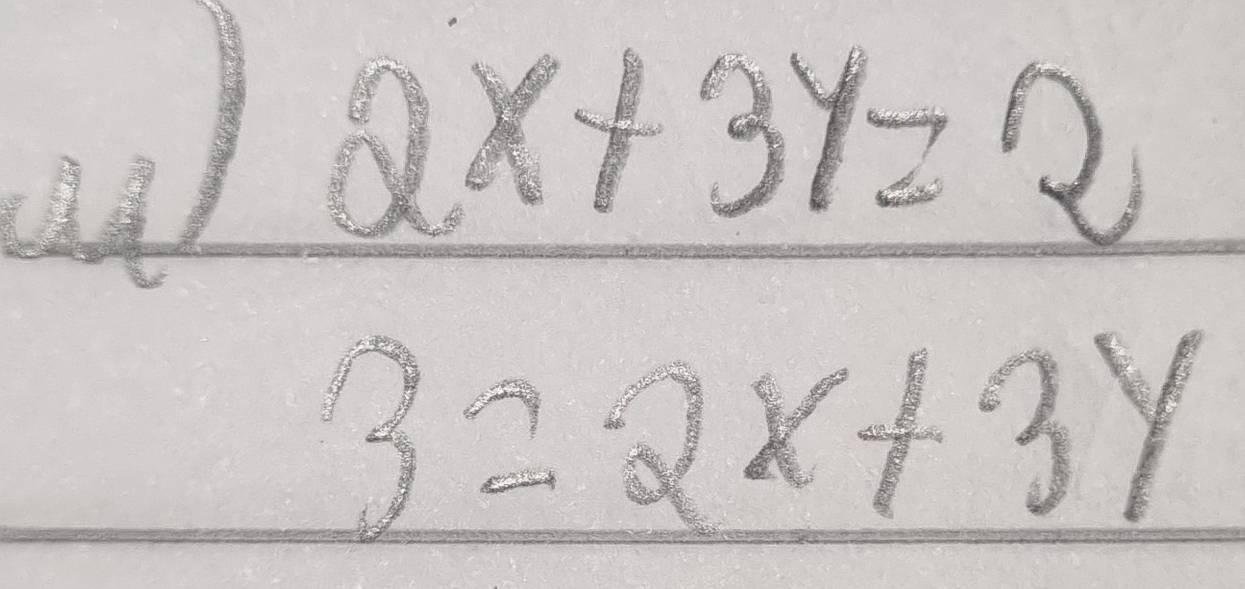 2x+3y=2
3=2x+3y